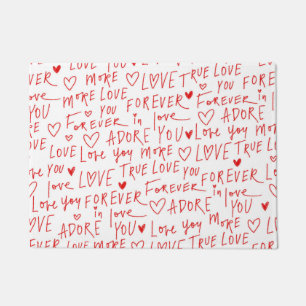 LOVE MORE LOVE TRUE LOVE
YOU more LOVE YOU FOREVER Forever in
YOU Forever in love ADORE YOU Love you more
LOVE Love you more LOVE TRUE LOVE YOU
in love LOVE YOU FOREVER Forever in love
Love you FOREVER in love ADORE YOU
ADORE YOU Love you more LOVE
YOU LOVE TRUE LOVE